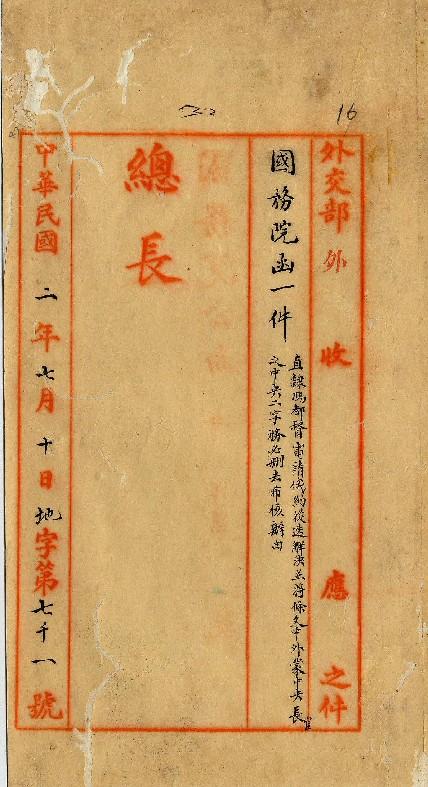 16
外交部外收應之件
國務院函一件
直隸馮都督電請俄約從速解決並將條文中外蒙中央長官
之中央二字務必刪去希核辦由
總長
中華民國二年七月十日地字第七千一號